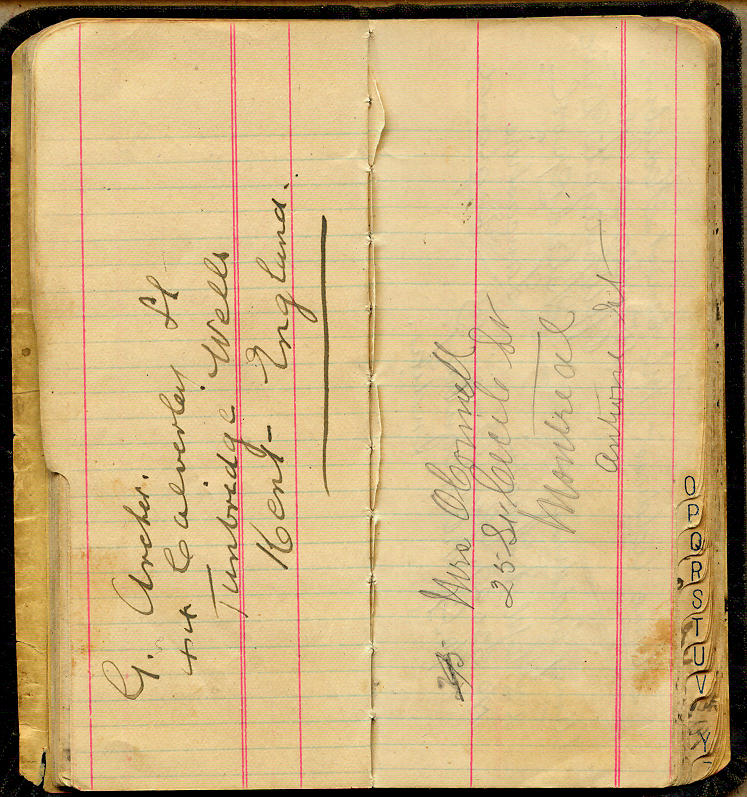 G. Archer.
44 Calverley St
Tunbridge Wells
Kent - England.
Mrs O'Connell
25 St Cecile St
Montreal
Antoine St
O
P
Q
R
S
T
U
V
Y